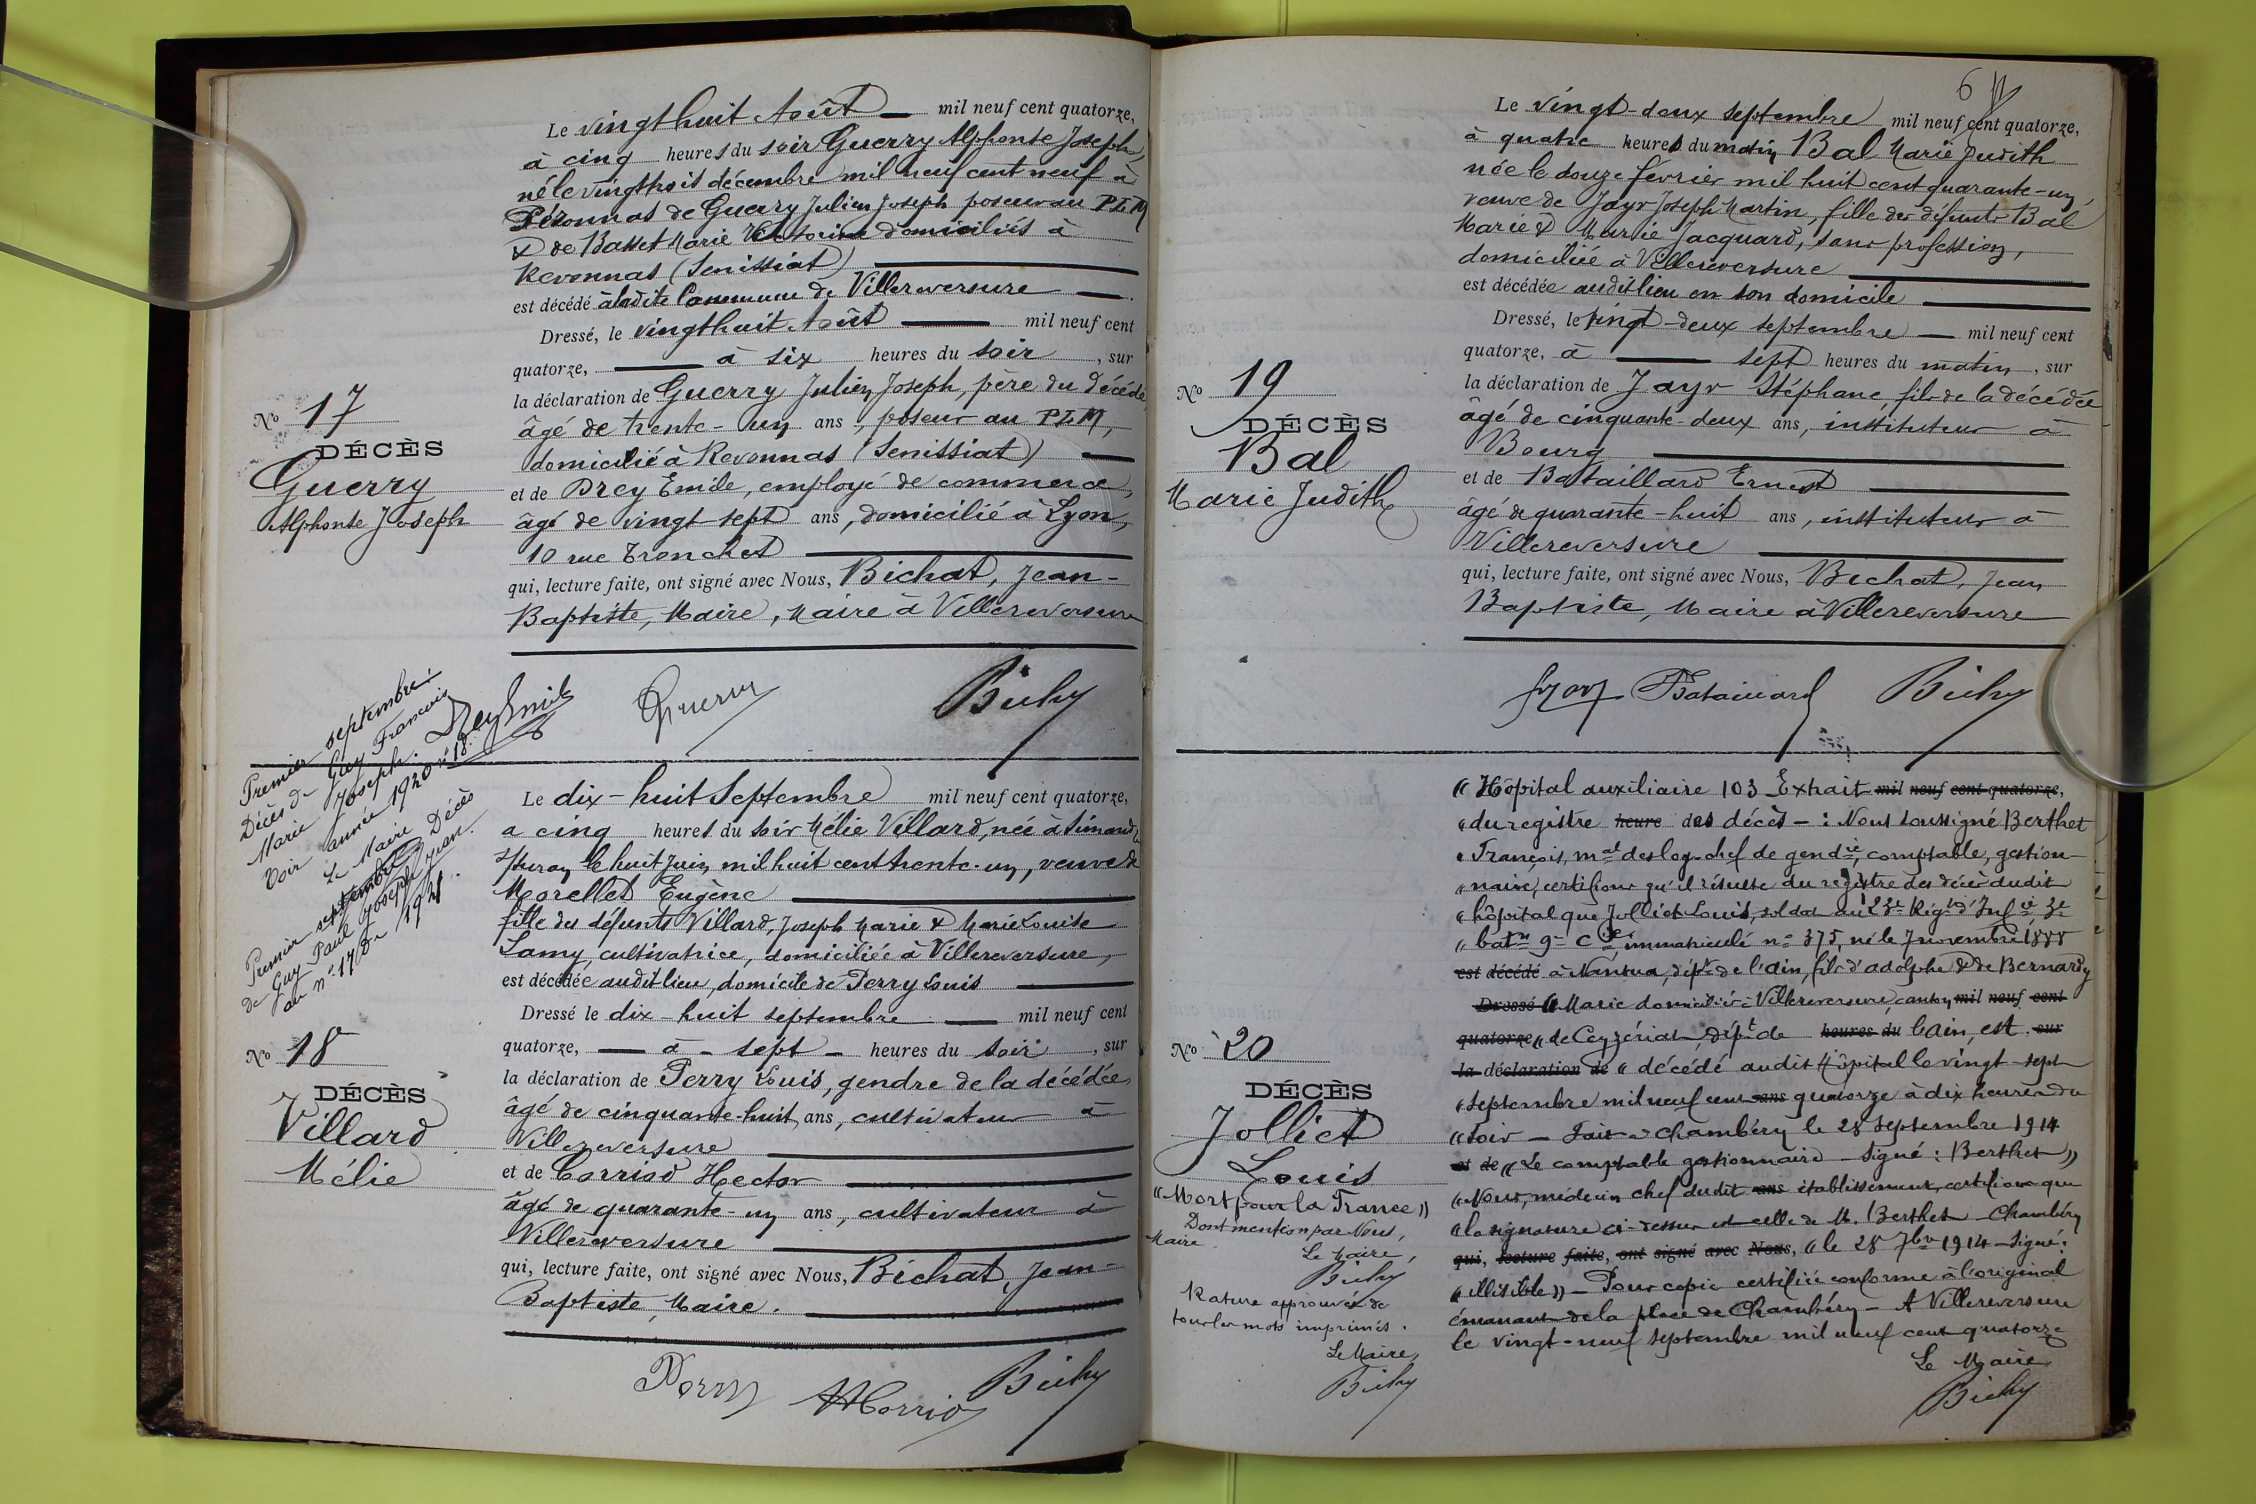 Le vingt huit Août — mil neuf cent quatorze,
à cinq heures du soir Guerry Alphonse Joseph,
né le vingt huit décembre mil neuf cent neuf à
Péronnas de Guerry Julien Joseph poseur au PLM
& de Basset Marie Victorine domiciliés à
Revonnas (Senissiat)
est décédé à ladite Commune de Villereversure
Dressé, le vingt huit Août — mil neuf cent
quatorze, — à six heures du soir, sur
la déclaration de Guerry Julien Joseph, père du décédé
âgé de trente-un ans, poseur au PLM,
domicilié à Revonnas (Senissiat)
et de Drey Emile, employé de commerce,
âgé de vingt-sept ans, domicilié à Lyon,
10 rue Tronchet
qui, lecture faite, ont signé avec Nous, Bichat, Jean-
Baptiste, Maire, Maire à Villereversure
No 17
DÉCÈS
Guerry
Alphonse Joseph
Drey Emile Guerry Bichat
Premier septembre
Décès de Guy François
Marie Joseph.
Voir année 1920 n° 18.
Le Maire
Premier septembre Décès
de Guy Paul Joseph Jean.
au n° 17 de 1921.
Le dix-huit Septembre mil neuf cent quatorze,
à cinq heures du soir Mélie Villard, née à Simandre
s/Suran le huit Juin mil huit cent trente-un, veuve de
Morellet Eugène
fille des défunts Villard, Joseph Marie & Marie Louise
Lamy, cultivatrice, domiciliée à Villereversure,
est décédée audit lieu, domicile de Perry Louis
Dressé le dix-huit septembre — mil neuf cent
quatorze, — à - sept - heures du soir, sur
la déclaration de Perry Louis, gendre de la décédée,
âgé de cinquante-huit ans, cultivateur à
Villereversure
et de Corriod Hector
âgé de quarante-un ans, cultivateur à
Villereversure
qui, lecture faite, ont signé avec Nous, Bichat, Jean-
Baptiste, Maire.
No 18
DÉCÈS
Villard
Mélie
Perry HCorriod Bichat
6
Le vingt-deux septembre mil neuf cent quatorze,
à quatre heures du matin Bal Marie Judith
née le douze février mil huit cent quarante-un,
veuve de Jayr Joseph Martin, fille des défunts Bal
Marie & Marie Jacquard, sans profession,
domiciliée à Villereversure
est décédée audit lieu en son domicile
Dressé, le vingt-deux septembre — mil neuf cent
quatorze, à — sept heures du matin, sur
la déclaration de Jayr Stéphane, fils de la décédée
âgé de cinquante-deux ans, instituteur à
Bourg
et de Bataillard Ernest
âgé de quarante-huit ans, instituteur à
Villereversure
qui, lecture faite, ont signé avec Nous, Bichat, Jean
Baptiste, Maire à Villereversure
No 19
DÉCÈS
Bal
Marie Judith
Jayr Bataillard Bichat
« Hôpital auxiliaire 103 - Extrait mil neuf cent quatorze,
« du registre heure des décès - : Nous soussigné Berthet
« François, mal des log. chef de gendie, comptable, gestion-
« naire, certifions qu'il résulte du registre des décès dudit
« hôpital que Jolliet Louis, soldat au 23e Régt d'Infie 3e
« batn 9e Cie immatriculé n° 375, né le 7 novembre 1888
est décédé à Nantua, dépt de l'Ain, fils d'adolphe & de Bernardy
Dressé « Marie domicilié à Villereversure, canton mil neuf cent
quatorze « de Ceyzériat, dépt de heures du l'ain, est sur
la déclaration de « décédé audit Hôpital le vingt-sept
« septembre mil neuf cent ans quatorze à dix heures du
« soir — Fait à Chambéry le 28 septembre 1914
et de « Le comptable gestionnaire — signé : Berthet »
« Nous, médecin chef dudit ans établissement, certifions que
« la signature ci-dessus est celle de M. Berthet - Chambéry
qui, lecture faite, ont signé avec Nous, « le 28 7bre 1914 - Signé :
« illisible » - Pour copie certifiée conforme à l'original
émanant de la place de Chambéry - A Villereversure
le vingt-neuf septembre mil neuf cent quatorze
Le Maire
Bichat
No 20
DÉCÈS
Jolliet
Louis
« Mort pour la France »
Dont mention par Nous,
Maire
Le Maire,
Bichat
Rature approuvée de
tous les mots imprimés.
Le Maire
Bichat